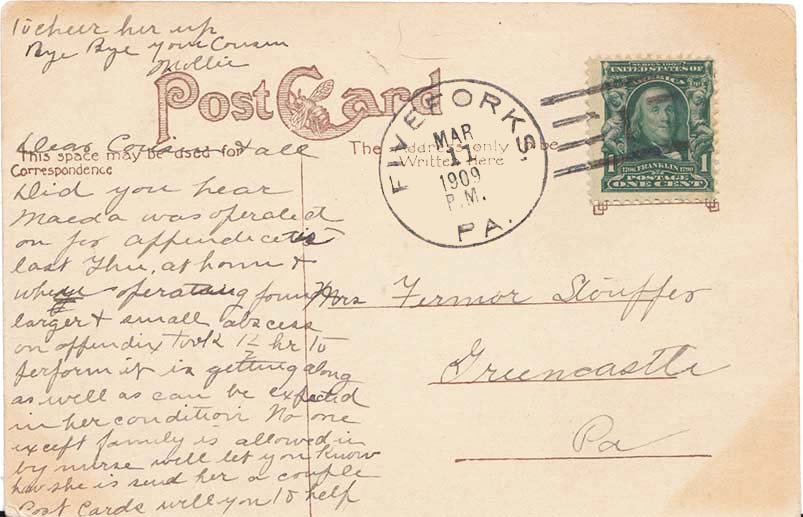 to cheer her up
Bye Bye your Cousin
Mollie
Post Card
Dear Cousin & all
This space may be used for
Correspondence
The Address only to be
Written Here
Did you hear
Maeda was operated
on for appendicetis
last Thu, at home &
when operating found
larger & small abscess
on appendix took 1 1/2 hr to
perform it is getting along
as well as can be expected
in her condition No one
except family is allowed in
by nurse will let you know
how she is send her a couple
Post Cards will you to help
FIVE FORKS,
MAR
11
1909
P.M.
PA.
SERIES 1902
UNITED STATES OF
AMERICA
1 1706 FRANKLIN 1790 1
POSTAGE
ONE CENT
Mrs Fermor Stouffer
Greencastle
Pa